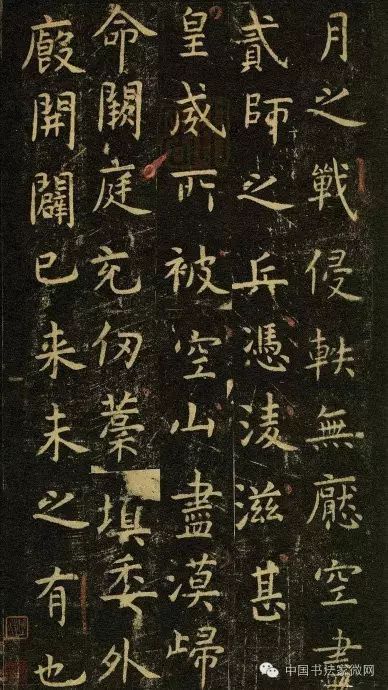 月之戰侵軼無厭空盡
貳師之兵憑淩滋甚
皇威所被空山盡漠歸
命闕庭充仞藁填委外
廄開闢已来未之有也
中国书法家微网